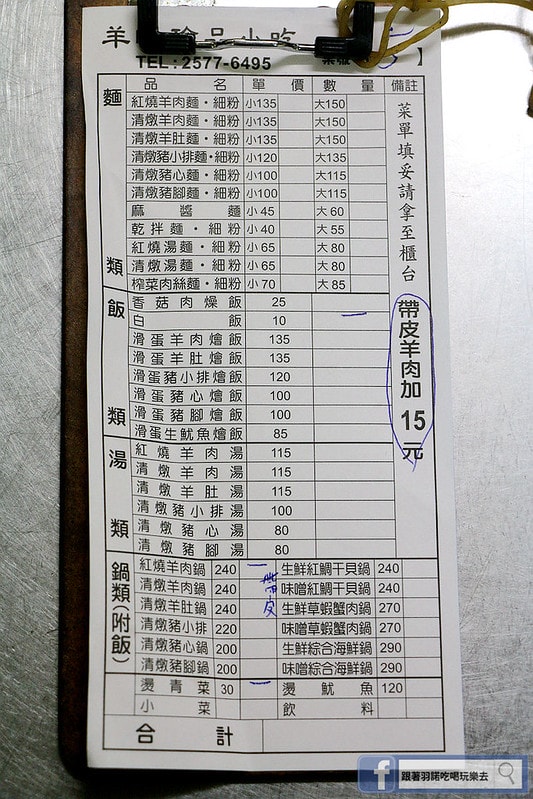 羊 珍品小吃
TEL:2577-6495 桌號 5 】
品名 單價 數量 備註
麵類
紅燒羊肉麵・細粉 小135 大150
清燉羊肉麵・細粉 小135 大150
清燉羊肚麵・細粉 小135 大150
清燉豬小排麵・細粉 小120 大135
清燉豬心麵・細粉 小100 大115
清燉豬腳麵・細粉 小100 大115
麻醬麵 小45 大60
乾拌麵・細粉 小40 大55
紅燒湯麵・細粉 小65 大80
清燉湯麵・細粉 小65 大80
榨菜肉絲麵・細粉 小70 大85
飯類
香菇肉燥飯 25
白飯 10 一
滑蛋羊肉燴飯 135
滑蛋羊肚燴飯 135
滑蛋豬小排燴飯 120
滑蛋豬心燴飯 100
滑蛋豬腳燴飯 100
滑蛋生魷魚燴飯 85
湯類
紅燒羊肉湯 115
清燉羊肉湯 115
清燉羊肚湯 115
清燉豬小排湯 100
清燉豬心湯 80
清燉豬腳湯 80
鍋類(附飯)
紅燒羊肉鍋 240 一 帶皮 生鮮紅鯛干貝鍋 240
清燉羊肉鍋 240 味噌紅鯛干貝鍋 240
清燉羊肚鍋 240 生鮮草蝦蟹肉鍋 270
清燉豬小排 220 味噌草蝦蟹肉鍋 270
清燉豬心鍋 200 生鮮綜合海鮮鍋 290
清燉豬腳鍋 200 味噌綜合海鮮鍋 290
燙青菜 30 一 燙魷魚 120
小菜 飲料
合計
菜單填妥請拿至櫃台
帶皮羊肉加15元
f 跟著羽諾吃喝玩樂去